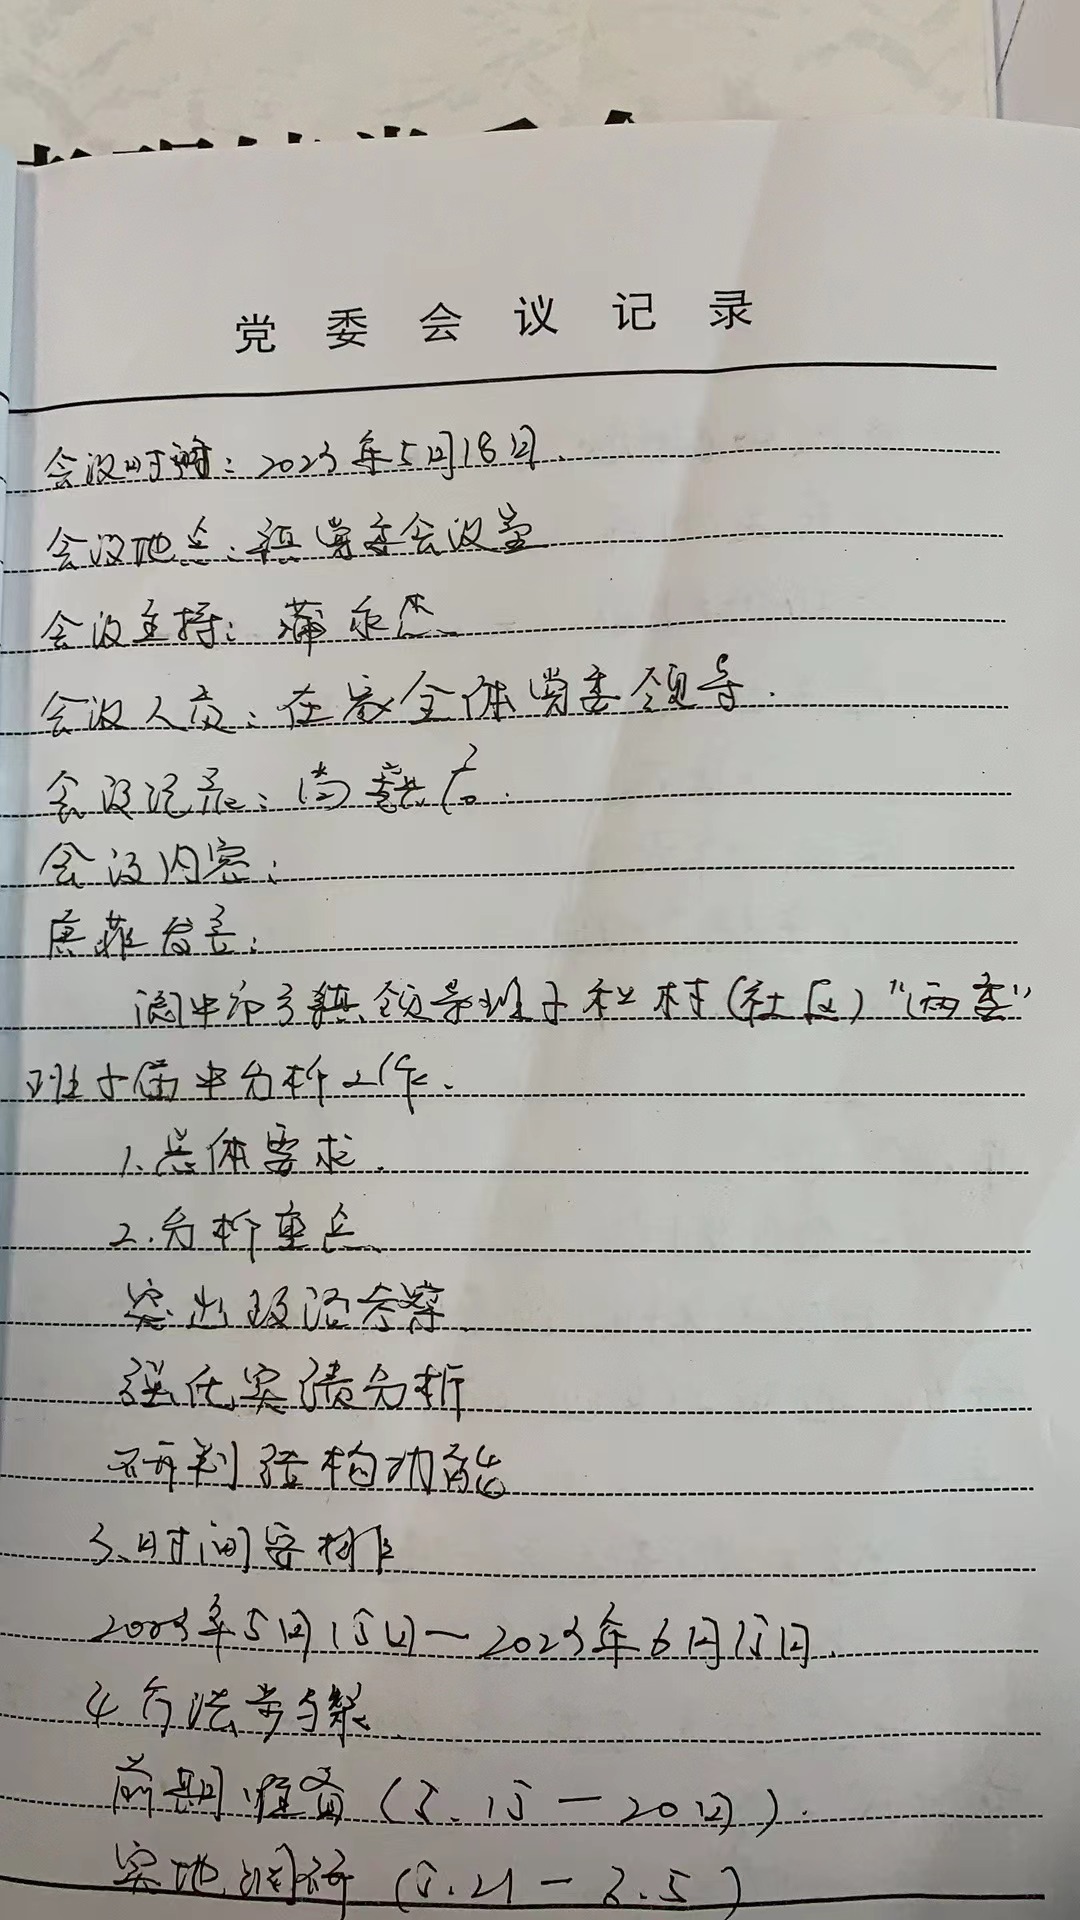 党委会议记录
会议时间：2023年5月18日.
会议地点：镇党委会议室
会议主持：蒲永杰
会议人员：在家全体党委领导.
会议记录：
会议内容：
唐菲发言：
阆中市乡镇领导班子和村（社区）“两委”
班子届中分析工作.
1.总体要求.
2.分析重点
突出政治考察
强化实绩分析
研判结构功能
3、时间安排
2023年5月15日—2023年6月15日.
4.方法步骤
前期准备（5.15—20日）.
实地调研（5.21—6.5）